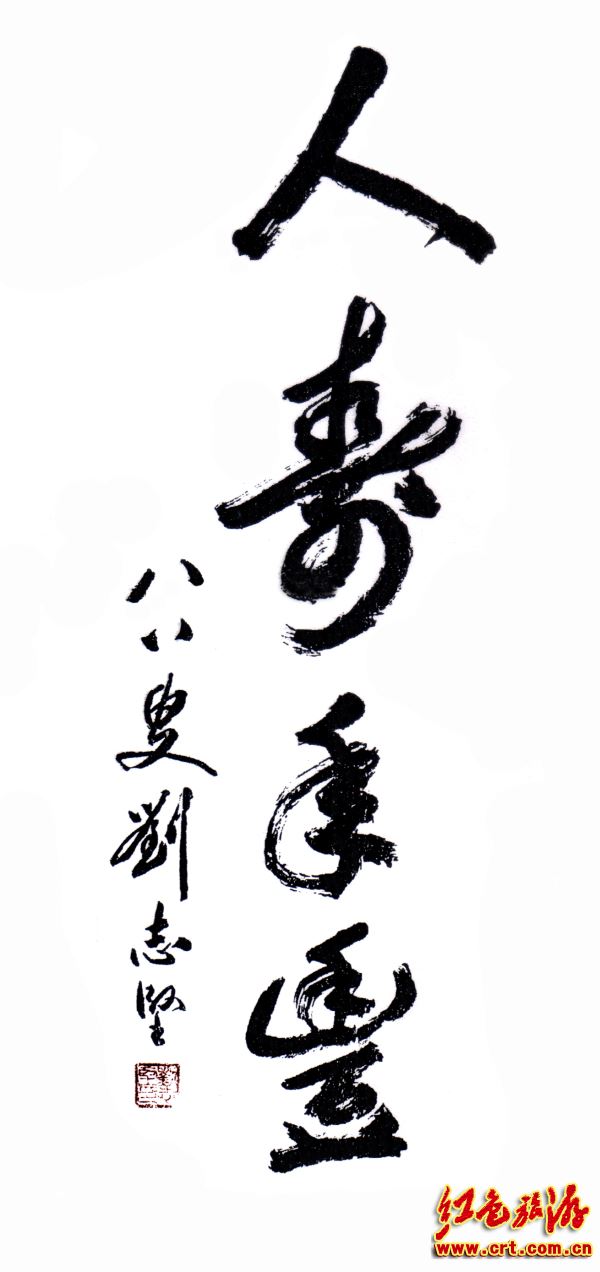 人壽年豐
八八叟劉志堅
红色旅游
www.crt.com.cn